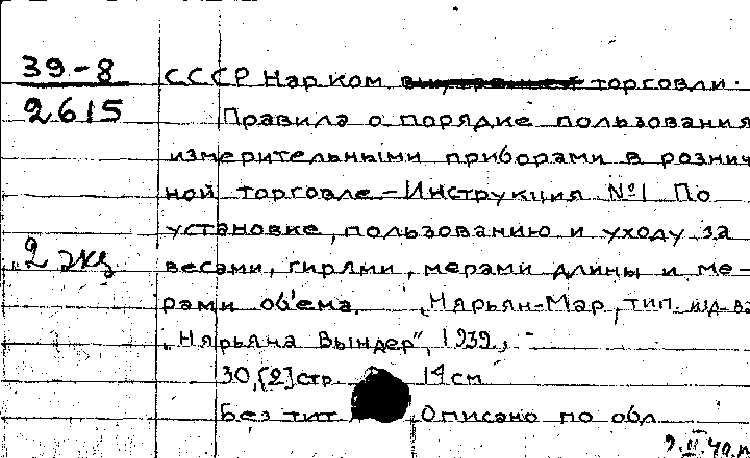 39-8
2615
СССР Нарком торговли.
Правила о порядке пользования
измерительными приборами в рознич
ной торговле – Инструкция №1 По
установке, пользованию и уходу за
„2 экз.
весами, гирями, мерами длины и ме-
рами об'ема. „Нарьян-Мар, тип. изд-ва
„Нярьяна Вындер", 1939, -
30,[2]стр 14 см
Без тит Описано по обл
9.II.40.